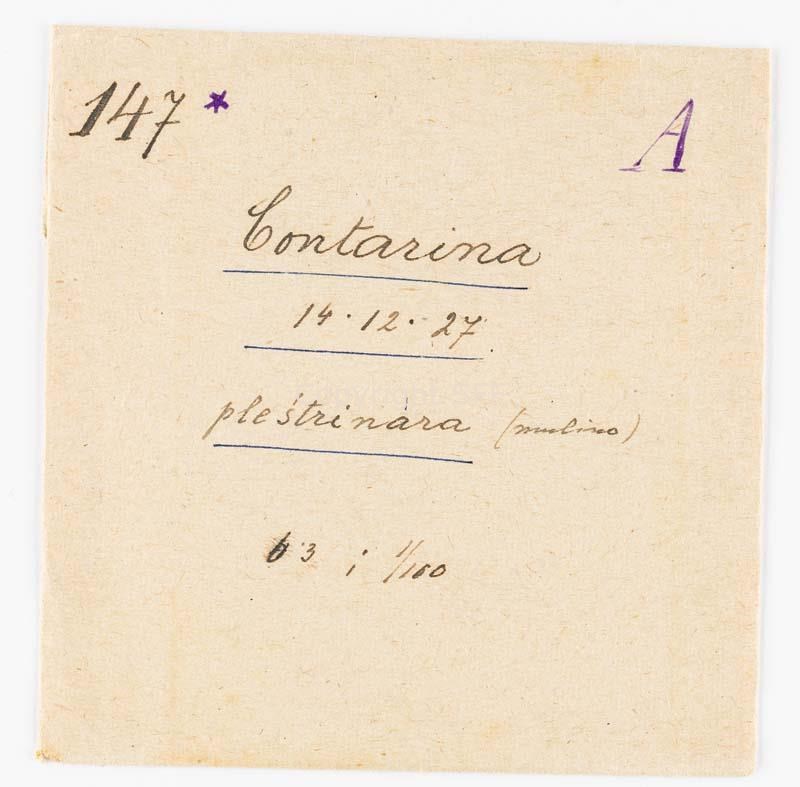 147 * A
Contarina
14·12·27
pleśtrinára (mulino)
6 3 i 1/100